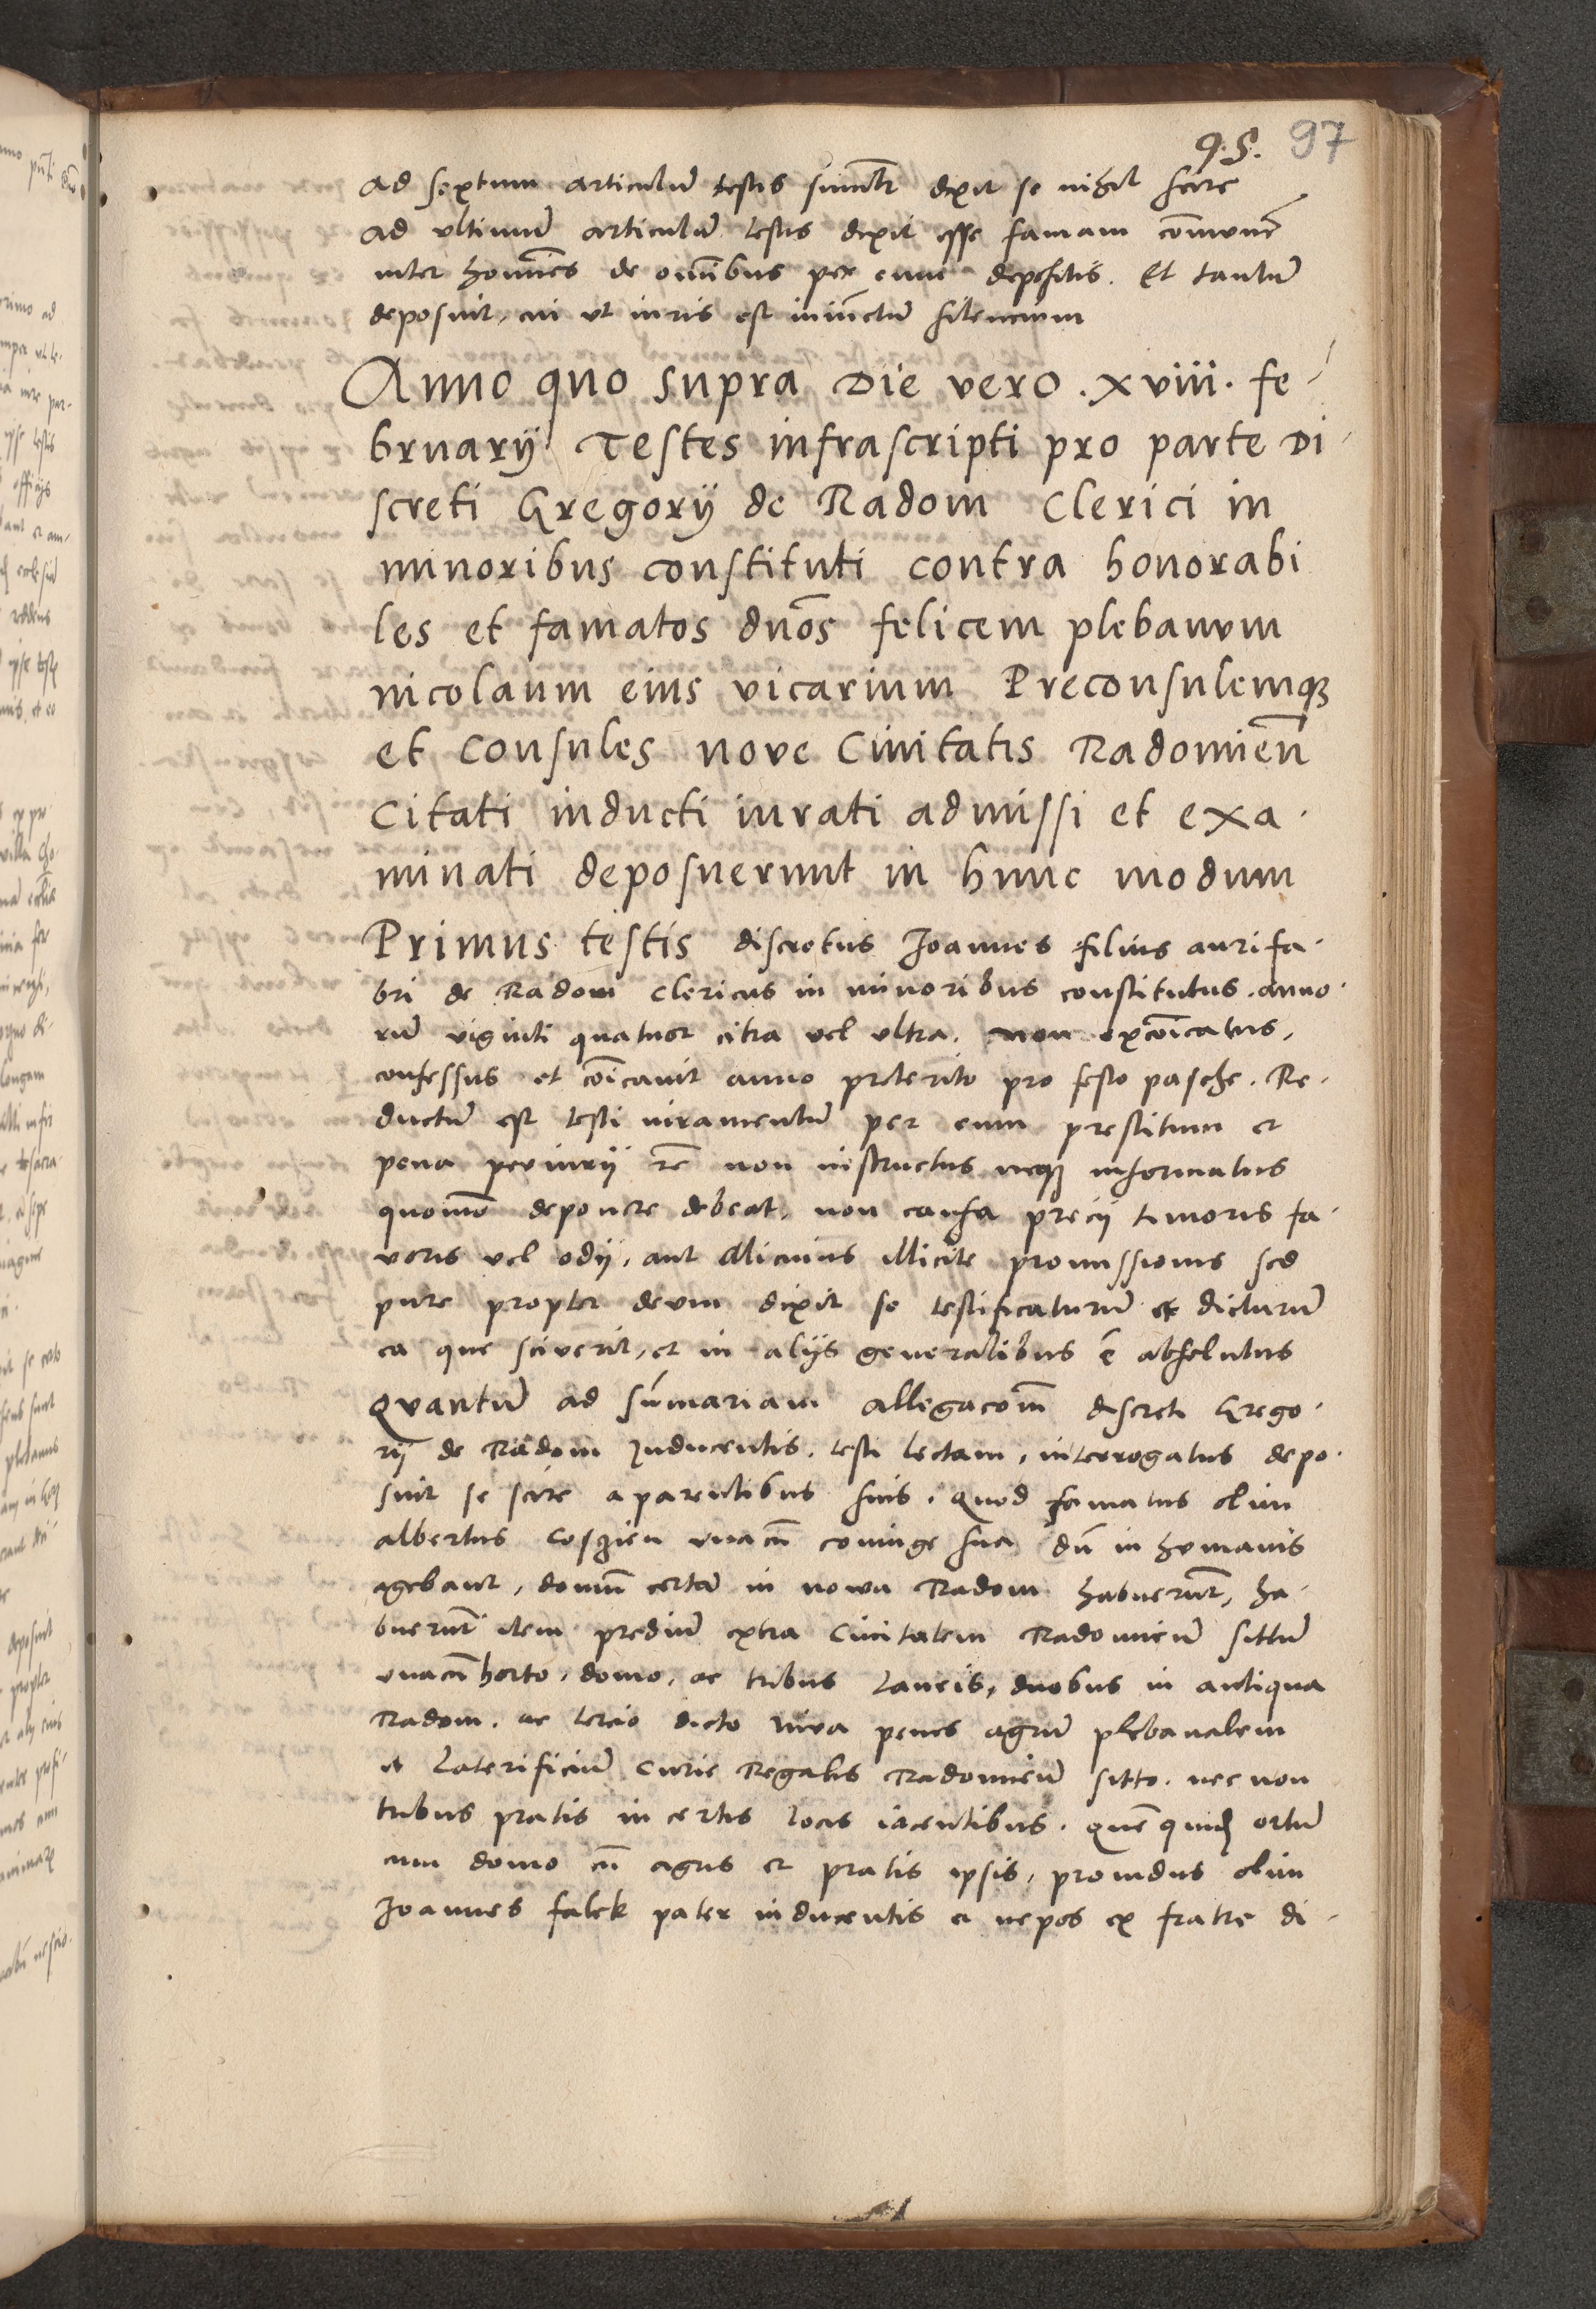 9.5. 97
ad sextum articulū testis simil̄r dixit se nihil scire
ad vltimū articulū testis dixit esse famam cōmunē
inter homīes de om̄ibus per eum depositis. Et tantū
deposuit, cui vt iuris est iniūctū silencium
Anno quo supra Die vero .xviii. fe-
bruarij Testes infrascripti pro parte Di-
screti Gregorij de Radom Clerici in
minoribus constituti contra honorabi
les et famatos dn̄os felicem plebanum
nicolaum eius vicarium Preconsulemqꝫ
et Consules nove Civitatis Radomień
Citati inducti iurati admissi et exa-
minati deposuerunt in hunc modum
Primus testis discretus Joannes filius aurifa-
bri de Radom clericus in minoribus constitutus. anno-
rū viginti quatuor citra vel vltra. non excōicatus,
confessus et cōicauit anno preterito pro festo pasche. Re-
ductū est testi iuramentū per eum prestitum et
pena periurij rc̄ non instructus neqꝫ informatus
quomō deponere debeat, non causa precij timoris fa-
voris vel odij, aut alicuius illicite promissionis sed
pure propter deum dixit se testificaturū et dicturū
ea que sciverit, et in alijs generalibus ē absolutus
Qvantū ad sum̄mariam allegacōm̄ discreti Grego-
rij de Radom Inducentis. testi lectam, interrogatus depo-
suit se scire a parentibus suis. quod famatus olim
albertus Coszien vnacū coniuge sua dū in humanis
agebant, domū certā in nowa Radom habuerūt, ha-
buerūt item prediū extra Civitatem Radomień sittū
vnacū horto, domo, ac tribus laneis, duobus in antiqua
Radom. ac tercio dicto niva penes agrū plebanalem
et Laterificiū Curie Regalis Radomień sitto. nec non
tribus pratis in certis locis iacentibus. quē quid ortū
cum domo cū agris et pratis ipsis, prouidus olim
Joannes falek pater inducentis et nepos ex fratre di-